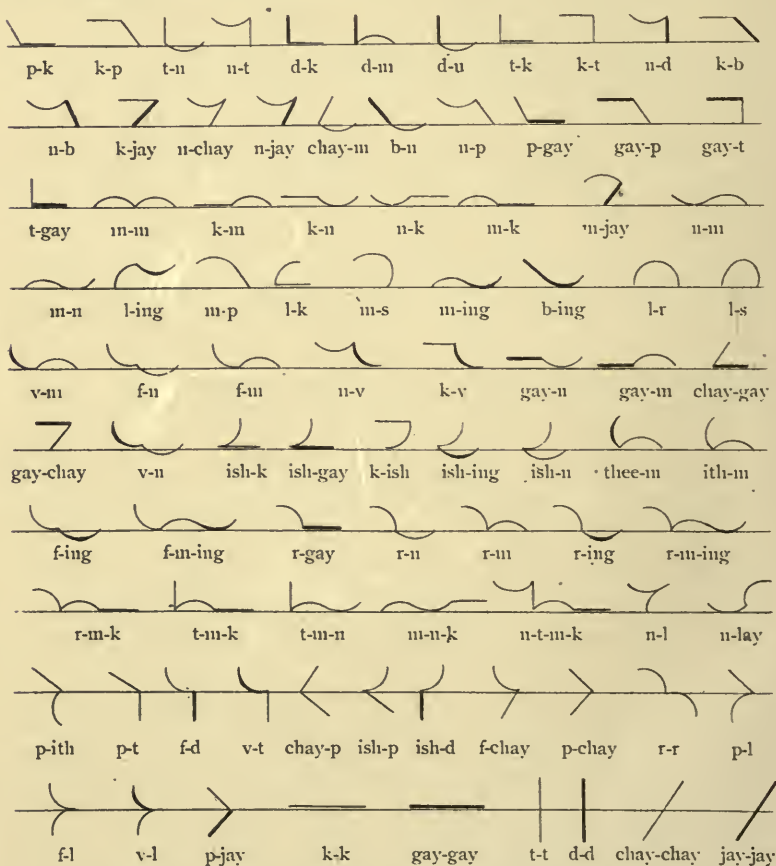 p-k k-p t-n n-t d-k d-m d-u t-k k-t n-d k-b
n-b k-jay n-chay n-jay chay-m b-n n-p p-gay gay-p gay-t
t-gay m-m k-m k-n n-k m-k m-jay n-m
m-n l-ing m-p l-k m-s m-ing b-ing l-r l-s
v-m f-n f-m n-v k-v gay-n gay-m chay-gay
gay-chay v-n ish-k ish-gay k-ish ish-ing ish-n thee-m ith-m
f-ing f-m-ing r-gay r-n r-m r-ing r-m-ing
r-m-k t-m-k t-m-n m-n-k n-t-m-k n-l n-lay
p-ith p-t f-d v-t chay-p ish-p ish-d f-chay p-chay r-r p-l
f-l v-l p-jay k-k gay-gay t-t d-d chay-chay jay-jay